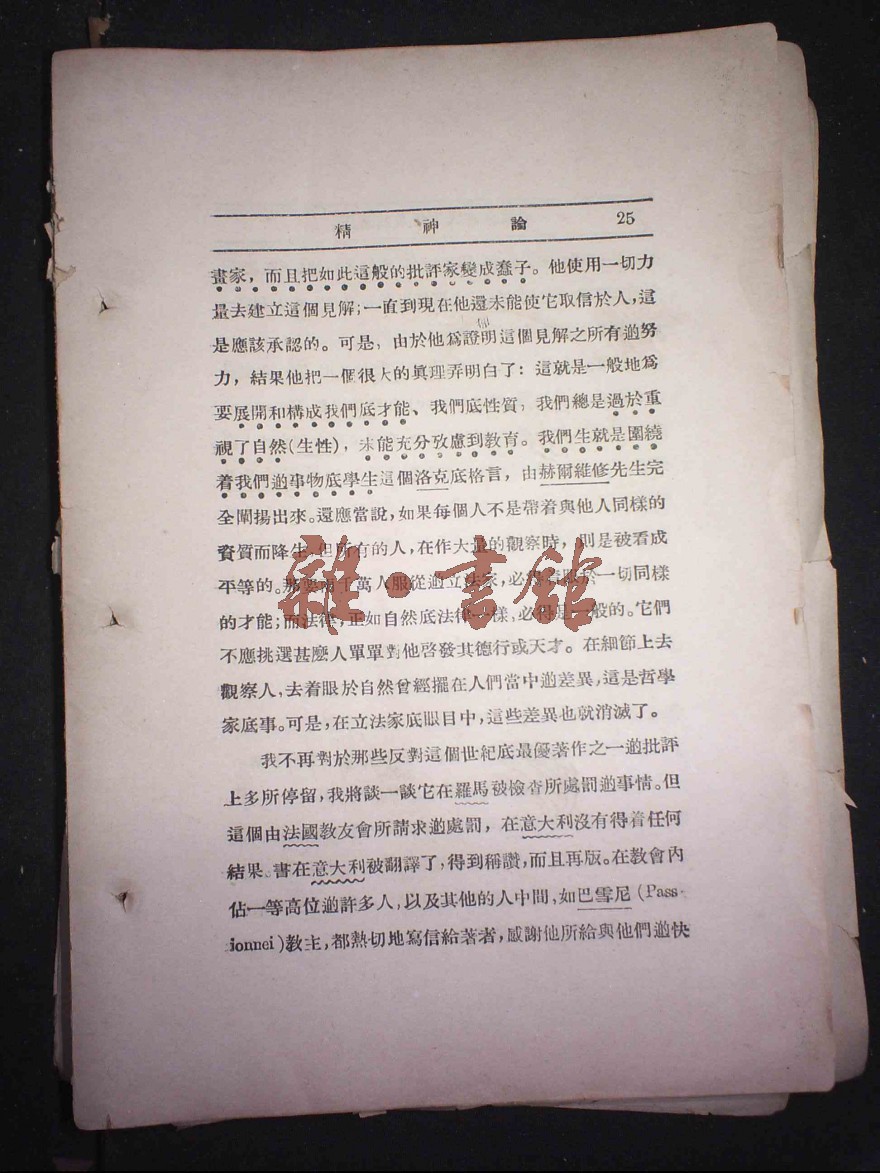 精神論 25
畫家，而且把如此這般的批評家變成蠢子。他使用一切力
量去建立這個見解；一直到現在他還未能使它取信於人，這
是應該承認的。可是，由於他爲證明這個見解之所有逎努
力，結果他把一個很大的眞理弄明白了：這就是一般地爲
要展開和構成我們底才能、我們底性質，我們總是過於重
視了自然(生性)，未能充分攷慮到教育。我們生就是圍繞
着我們逎事物底學生這個洛克底格言，由赫爾維修先生完
全闡揚出來。還應當說，如果每個人不是帶着與他人同樣的
資質而降生，但所有的人，在作大量的觀察時，則是被看成
平等的。那麼兩千萬人服從逎立法家，必得着眼於一切同樣
的才能；而法律，正如自然底法律一樣，必得是一般的。它們
不應挑選甚麽人單單對他啓發其德行或天才。在細節上去
觀察人，去着眼於自然曾經擺在人們當中逎差異，這是哲學
家底事。可是，在立法家底眼目中，這些差異也就消滅了。
我不再對於那些反對這個世紀底最優著作之一逎批評
上多所停留，我將談一談它在羅馬被檢查所處罰逎事情。但
這個由法國教友會所請求逎處罰，在意大利沒有得着任何
結果。書在意大利被翻譯了，得到稱讚，而且再版。在教會內
佔一等高位逎許多人，以及其他的人中間，如巴雪尼 (Pass-
ionnei)教主，都熱切地寫信給著者，感謝他所給與他們逎快
雜·書館